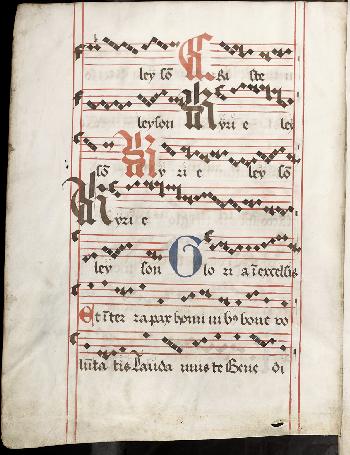 ley sō Xpi ste
leyson Kyri e ley
sō Kyri e ley sō
Kyri e
ley son Glo ri a ī excelsis
Et ī ter ra pax homi ni bꝰ bone vo
lūta tis Lauda mus te Bene di